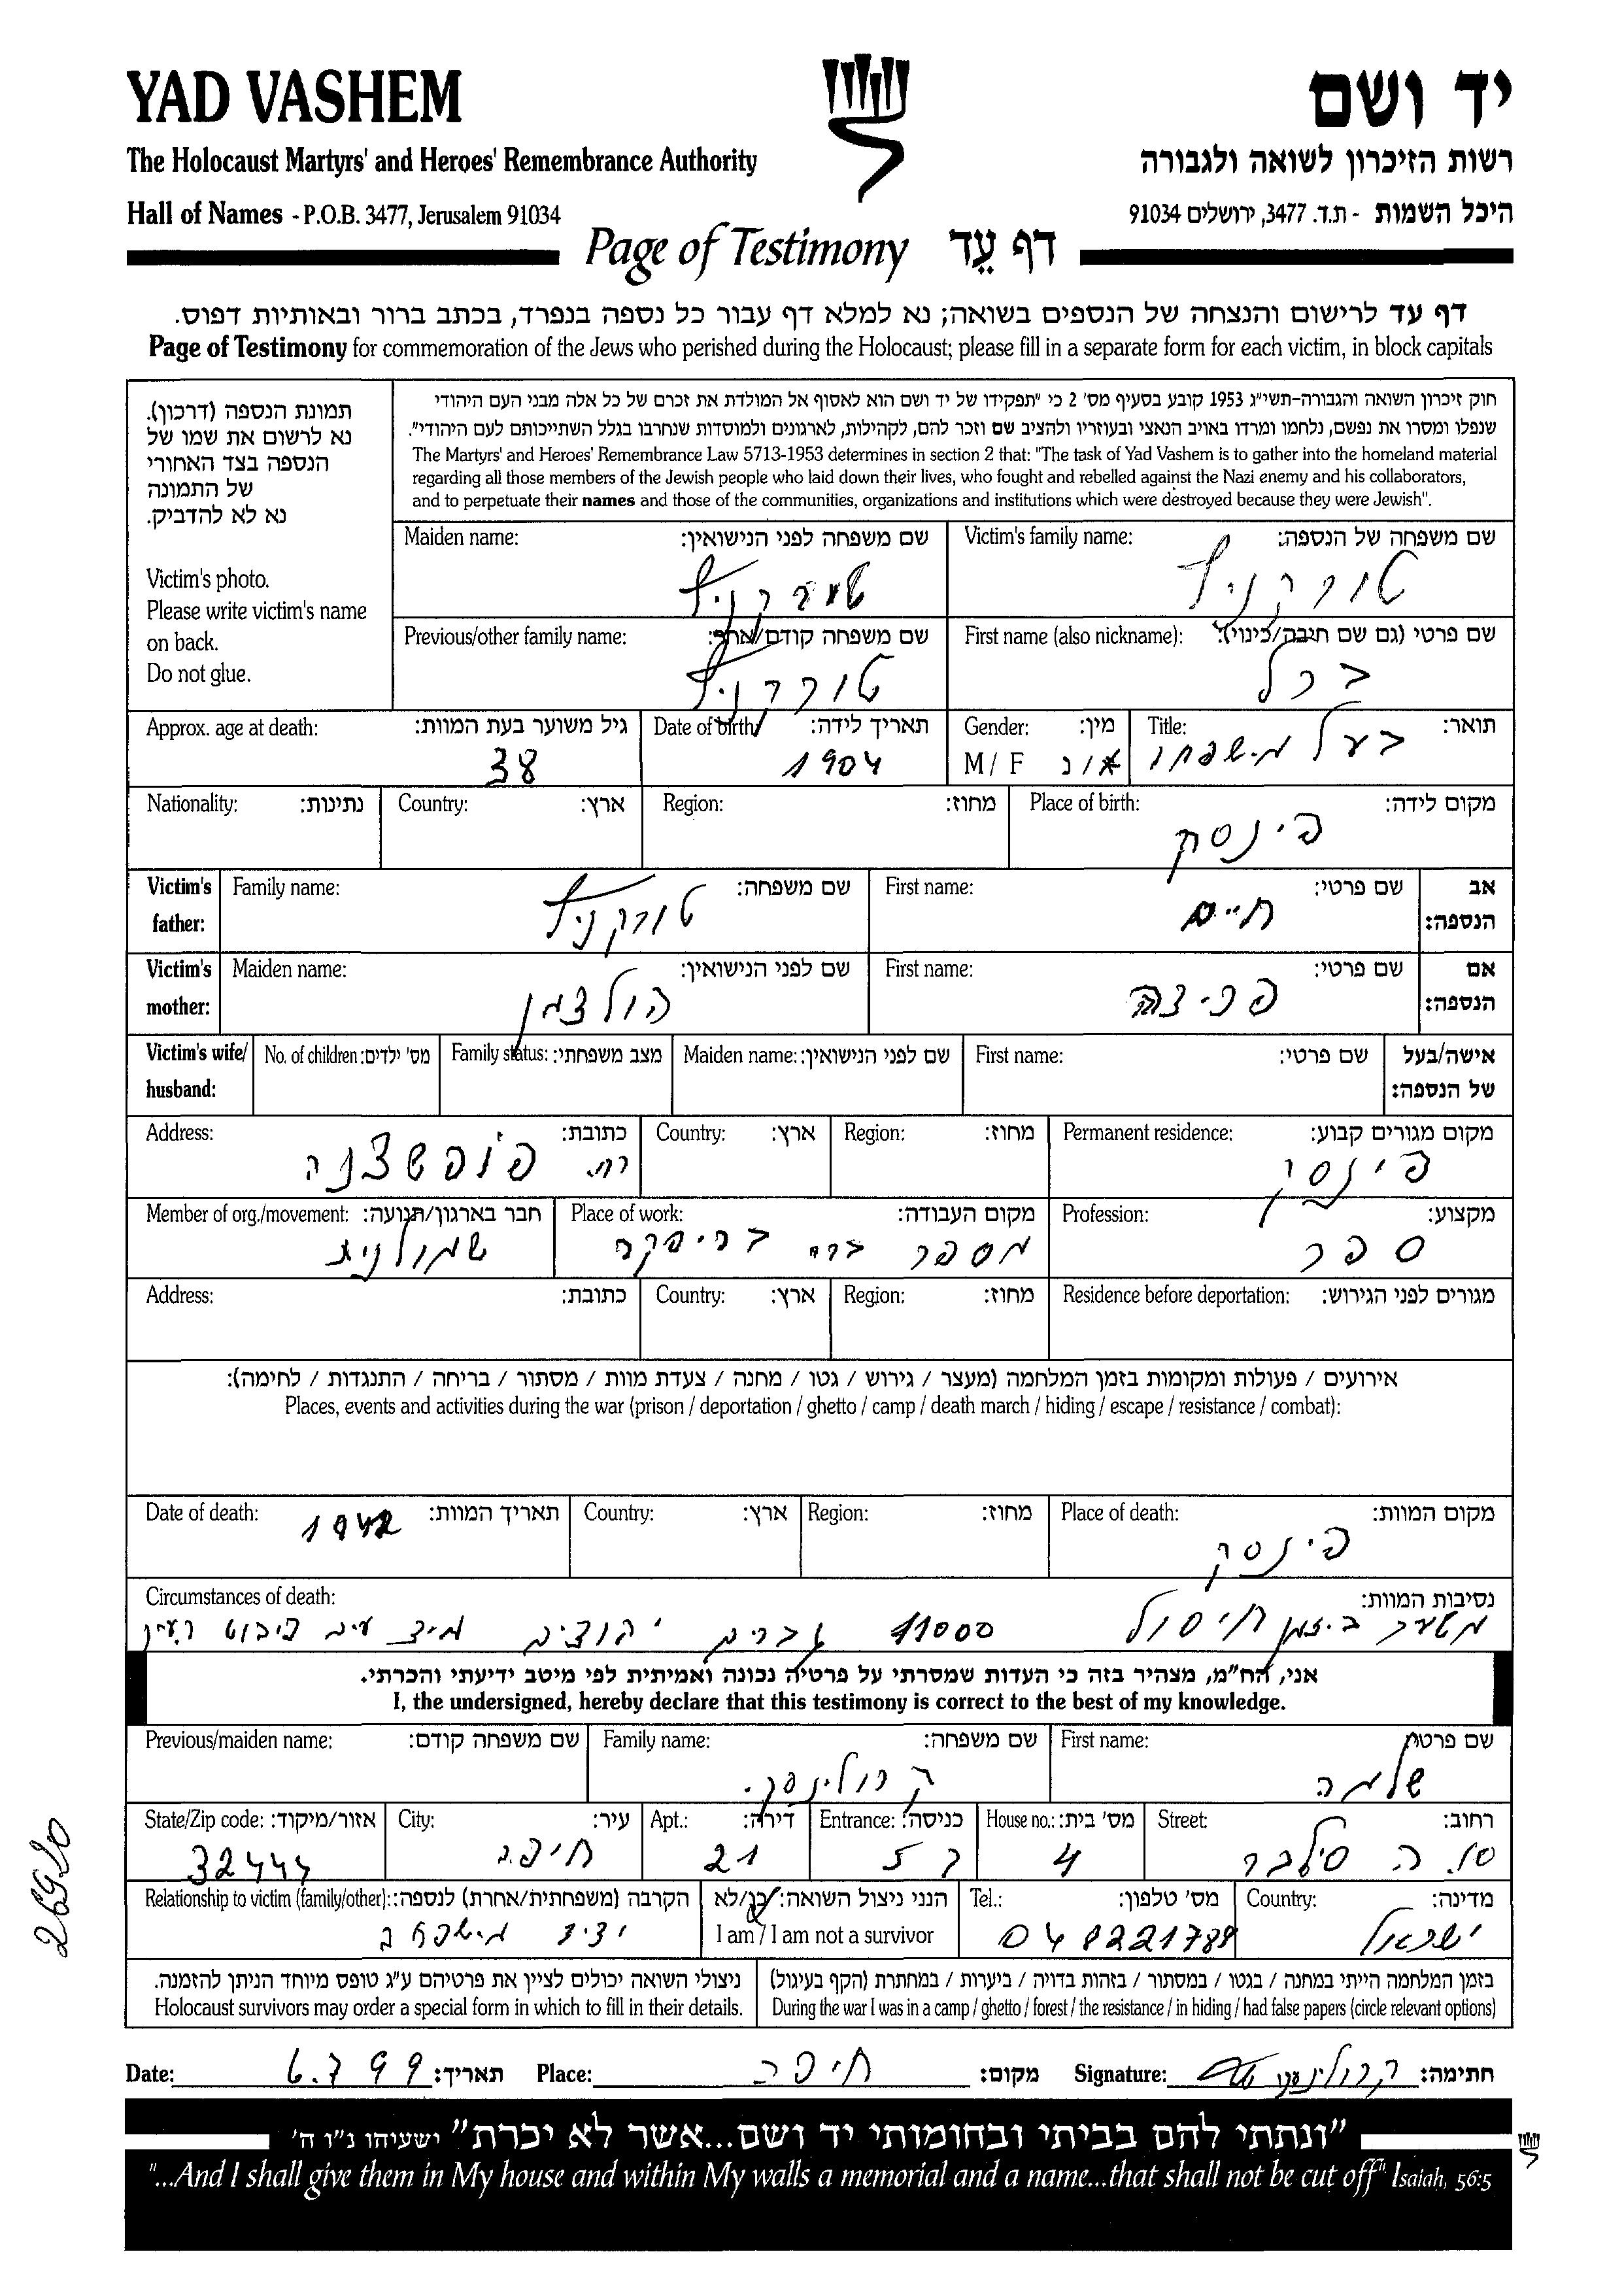 YAD VASHEM
יד ושם
The Holocaust Martyrs' and Heroes' Remembrance Authority
רשות הזיכרון לשואה ולגבורה
Hall of Names - P.O.B. 3477, Jerusalem 91034
היכל השמות - ת.ד. 3477, ירושלים 91034
Page of Testimony דף עֵד
דף עד לרישום והנצחה של הנספים בשואה; נא למלא דף עבור כל נספה בנפרד, בכתב ברור ובאותיות דפוס.
Page of Testimony for commemoration of the Jews who perished during the Holocaust; please fill in a separate form for each victim, in block capitals
תמונת הנספה (דרכון).
נא לרשום את שמו של
הנספה בצד האחורי
של התמונה
נא לא להדביק.
Victim's photo.
Please write victim's name
on back.
Do not glue.
חוק זיכרון השואה והגבורה-תשי"ג 1953 קובע בסעיף מס' 2 כי "תפקידו של יד ושם הוא לאסוף אל המולדת את זכרם של כל אלה מבני העם היהודי
שנפלו ומסרו את נפשם, נלחמו ומרדו באויב הנאצי ובעוזריו ולהציב שם וזכר להם, לקהילות, לארגונים ולמוסדות שנחרבו בגלל השתייכותם לעם היהודי".
The Martyrs' and Heroes' Remembrance Law 5713-1953 determines in section 2 that: "The task of Yad Vashem is to gather into the homeland material
regarding all those members of the Jewish people who laid down their lives, who fought and rebelled against the Nazi enemy and his collaborators,
and to perpetuate their names and those of the communities, organizations and institutions which were destroyed because they were Jewish".
Victim's family name: שם משפחה של הנספה:
טורקניץ
Maiden name: שם משפחה לפני הנישואין:
First name (also nickname): שם פרטי (גם שם חיבה/כינוי):
ברל
Previous/other family name: שם משפחה קודם/אחר:
טורקניץ
Title: תואר:
בעל משפחה
Gender: מין:
M / F
Date of birth: תאריך לידה:
1904
Approx. age at death: גיל משוער בעת המוות:
38
Place of birth: מקום לידה:
פינסק
Region: מחוז:
Country: ארץ:
Nationality: נתינות:
Victim's father: אב הנספה:
First name: שם פרטי:
חיים
Family name: שם משפחה:
טורקניץ
Victim's mother: אם הנספה:
First name: שם פרטי:
Maiden name: שם לפני הנישואין:
הולצמן
Victim's wife/ husband: אישה/בעל של הנספה:
First name: שם פרטי:
Maiden name: שם לפני הנישואין:
Family status: מצב משפחתי:
No. of children: מס' ילדים:
Permanent residence: מקום מגורים קבוע:
פינסק
Region: מחוז:
Country: ארץ:
Address: כתובת:
רח. פופשצנה
Profession: מקצוע:
ספר
Place of work: מקום העבודה:
מספרה
Member of org./movement: חבר בארגון/תנועה:
Residence before deportation: מגורים לפני הגירוש:
Region: מחוז:
Country: ארץ:
Address: כתובת:
אירועים / פעולות ומקומות בזמן המלחמה (מעצר / גירוש / גטו / מחנה / צעדת מוות / מסתור / בריחה / התנגדות / לחימה):
Places, events and activities during the war (prison / deportation / ghetto / camp / death march / hiding / escape / resistance / combat):
Place of death: מקום המוות:
פינסק
Region: מחוז:
Country: ארץ:
Date of death: תאריך המוות:
1942
Circumstances of death: נסיבות המוות:
חיסול 11000 גברים
אני, הח"מ, מצהיר בזה כי העדות שמסרתי על פרטיה נכונה ואמיתית לפי מיטב ידיעתי והכרתי.
I, the undersigned, hereby declare that this testimony is correct to the best of my knowledge.
First name: שם פרטי:
שלמה
Family name: שם משפחה:
קרולינסקי
Previous/maiden name: שם משפחה קודם:
Street: רחוב:
סילבר
House no.: מס' בית:
4
Entrance: כניסה:
Apt.: דירה:
21
City: עיר:
חיפה
State/Zip code: אזור/מיקוד:
32444
Country: מדינה:
ישראל
Tel.: מס' טלפון:
048221789
הנני ניצול השואה: כן/לא
I am / I am not a survivor
Relationship to victim (family/other): הקרבה (משפחתית/אחרת) לנספה:
ידיד משפחה
בזמן המלחמה הייתי במחנה / בגטו / במסתור / בזהות בדויה / ביערות / במחתרת (הקף בעיגול)
During the war I was in a camp / ghetto / forest / the resistance / in hiding / had false papers (circle relevant options)
ניצולי השואה יכולים לציין את פרטיהם ע"ג טופס מיוחד הניתן להזמנה.
Holocaust survivors may order a special form in which to fill in their details.
Date: 6.7 99 תאריך: Place: חיפה מקום: Signature: קרולינסקי חתימה:
"ונתתי להם בביתי ובחומותי יד ושם...אשר לא יכרת" ישעיהו נ"ו ה'
"...And I shall give them in My house and within My walls a memorial and a name...that shall not be cut off" Isaiah, 56:5